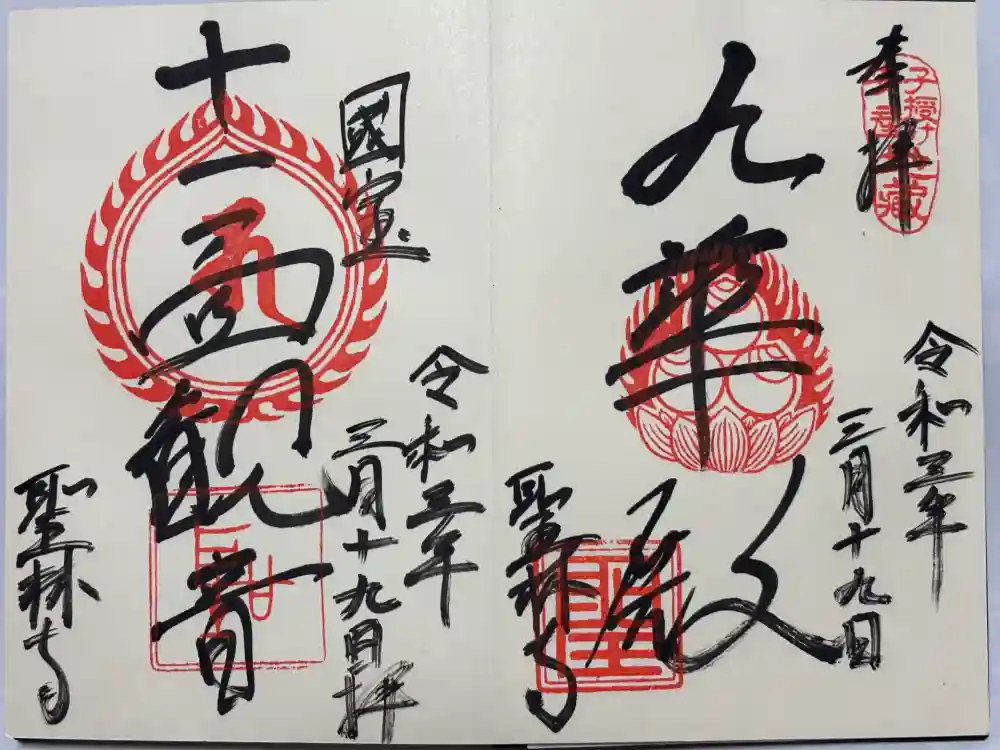 奉拝
子授け
地蔵
令和三年
三月十九日
九華殿
聖林寺
国宝
令和三年
三月十九日拝
十一面観音
聖林寺